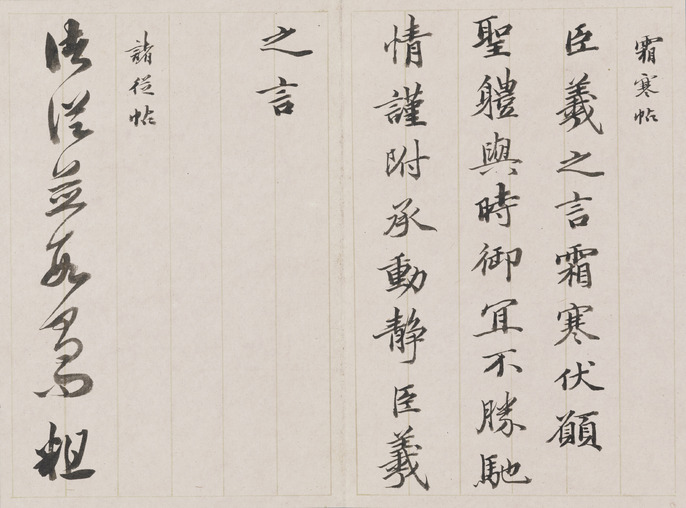 霜寒帖
臣羲之言霜寒伏願
聖體與時御宜不勝馳
情謹附承動靜臣羲
之言
諸從帖
諸從並數有問粗